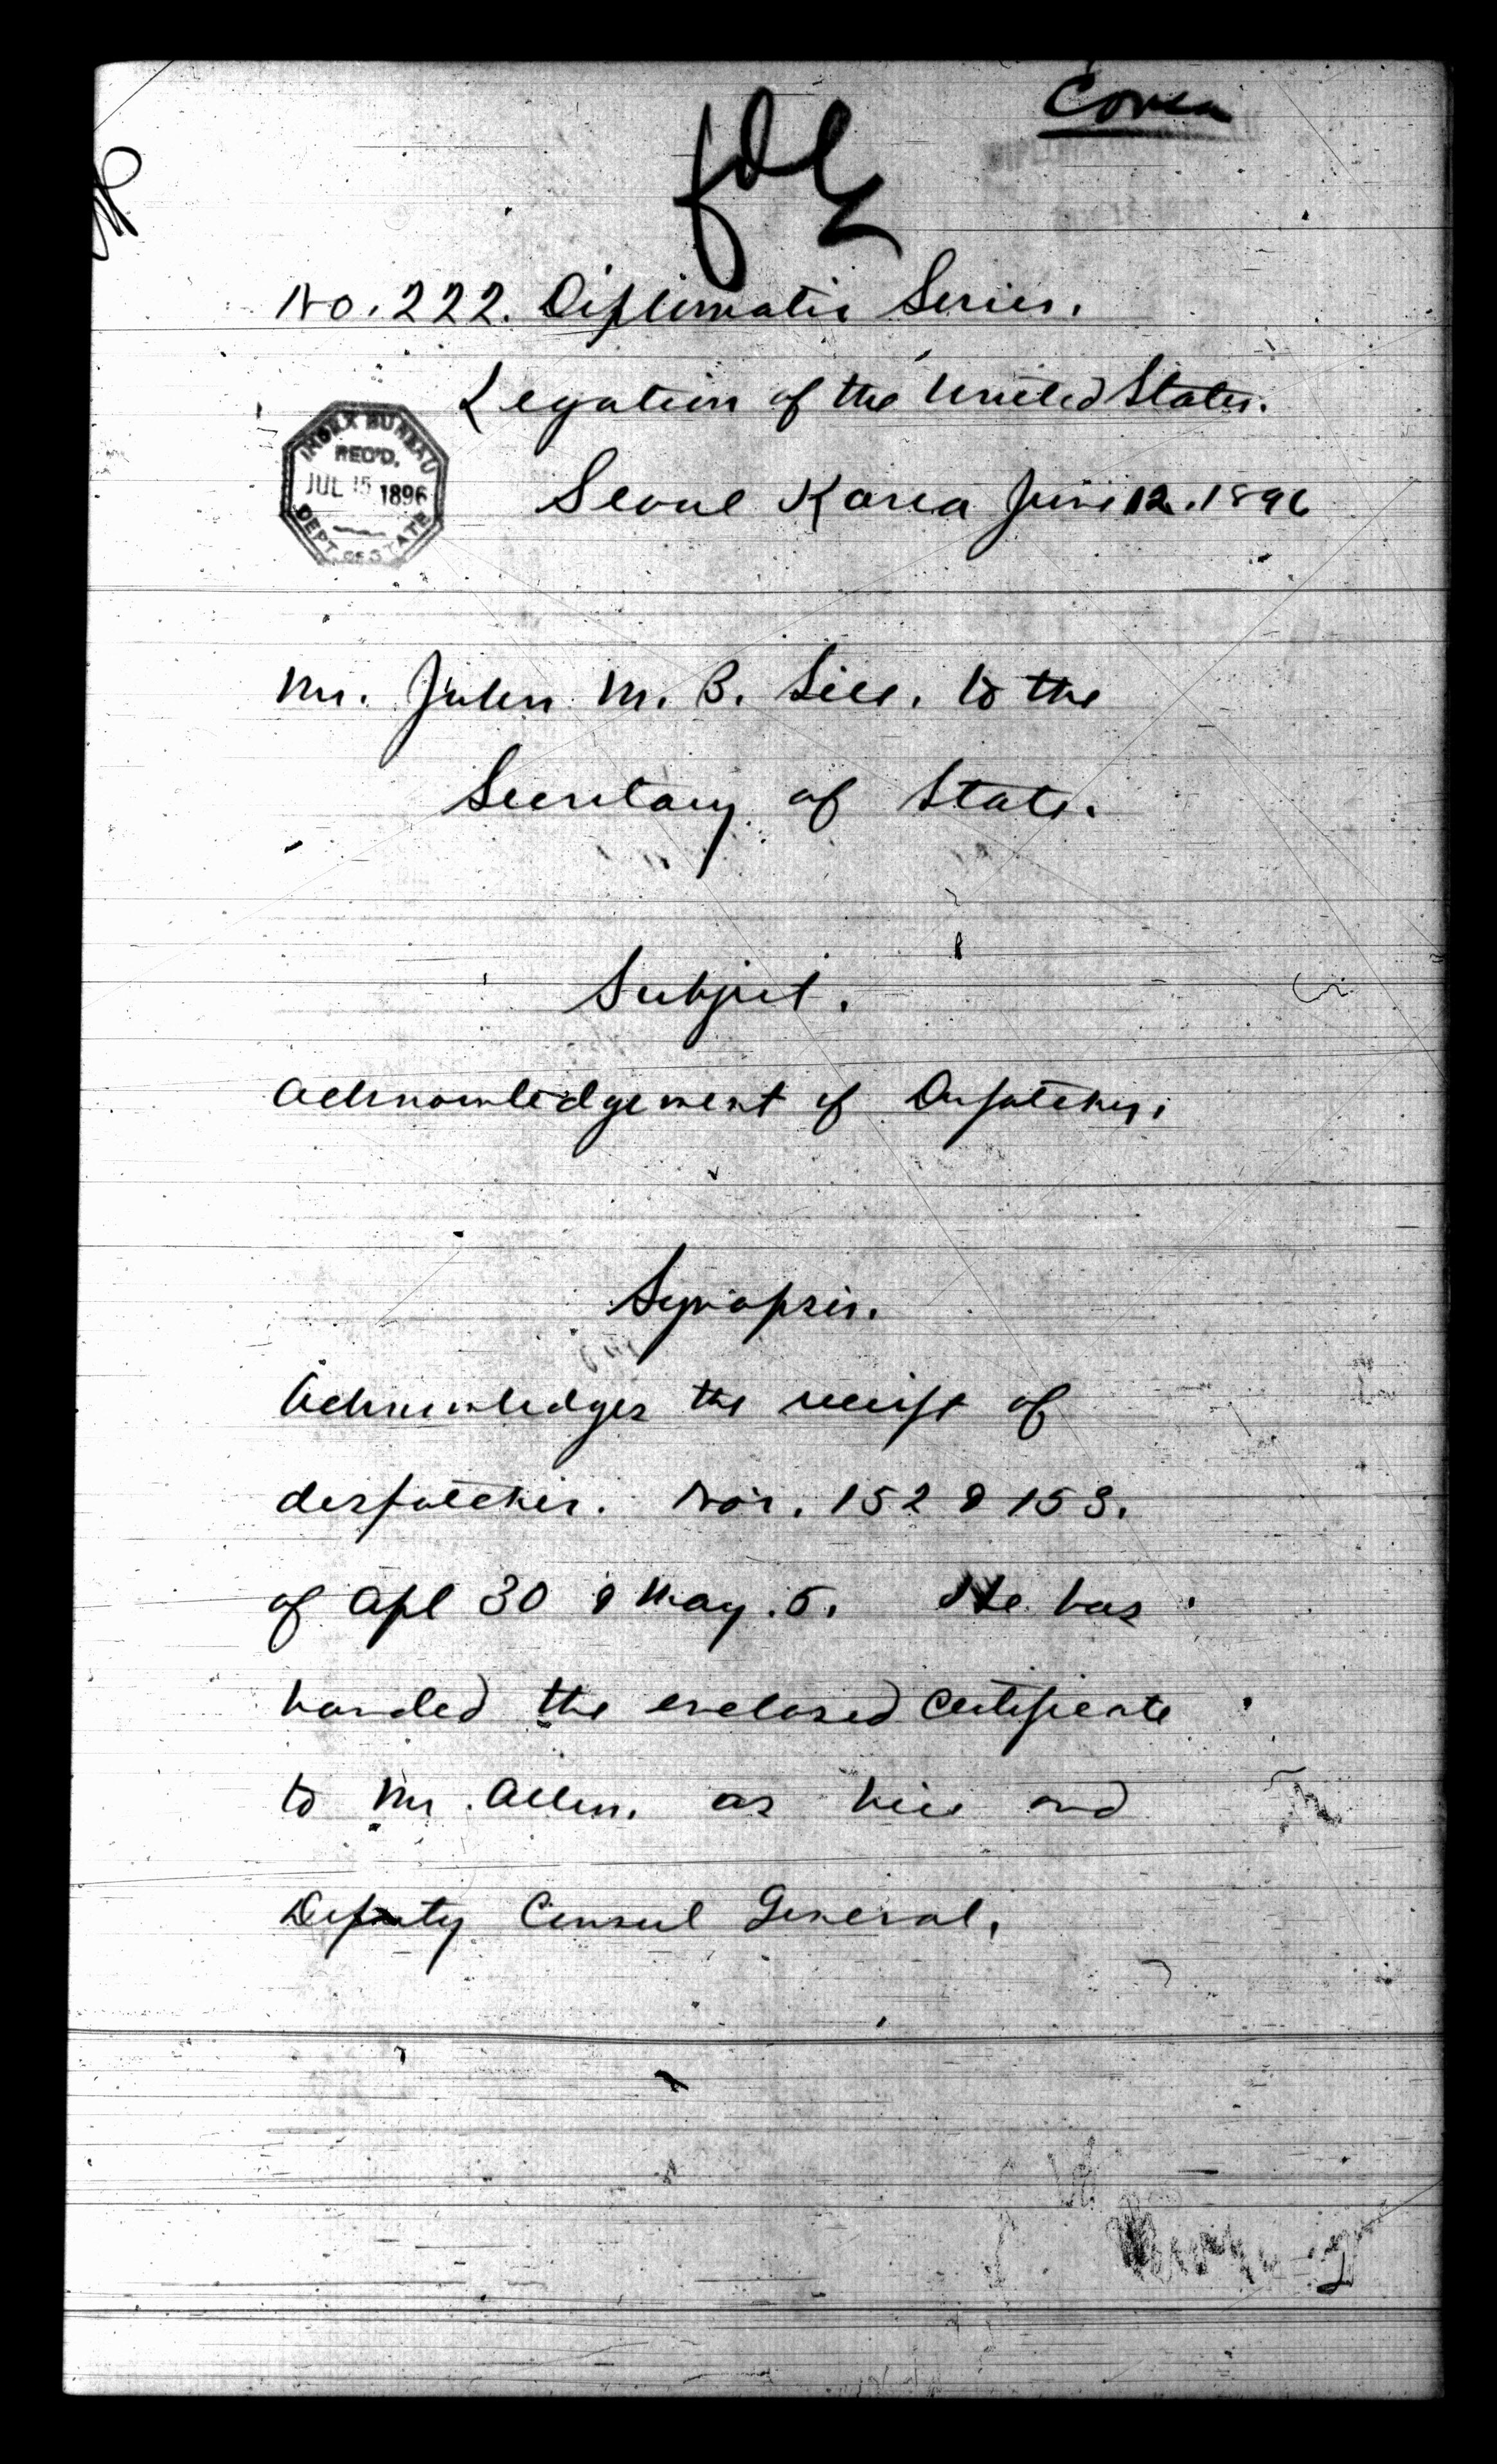 Corea
file
DIPLOMATIC BUREAU
No. 222. Diplomatic Series.
Legation of the United States.
INDEX BUREAU
REC'D.
JUL 15 1896
DEPT. OF STATE
Seoul Korea June 12. 1896
Mr. John M. B. Sill. to the
Secretary of State.
Subject.
Acknowledgement of Despatches.
Synopsis.
Acknowledges the receipt of
despatches. Nos. 152 & 153.
of Apl 30 & May. 5. He has
handed the enclosed Certificate
to Mr. Allen. as Vice and
Deputy Consul General.